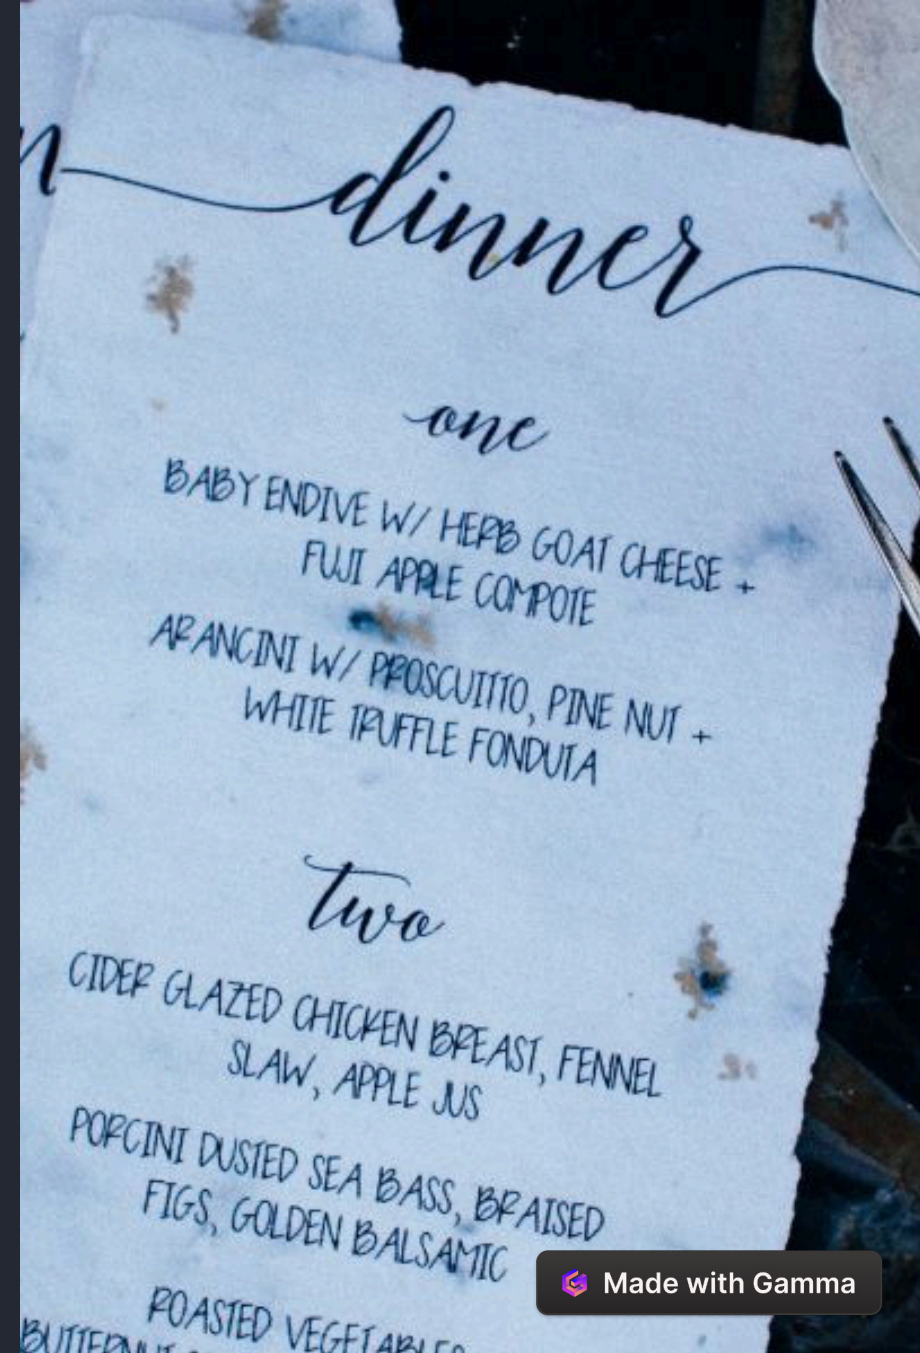 dinner
one
BABY ENDIVE W/ HERB GOAT CHEESE +
FUJI APPLE COMPOTE
ARANCINI W/ PROSCUITTO, PINE NUT +
WHITE TRUFFLE FONDUTA
two
CIDER GLAZED CHICKEN BREAST, FENNEL
SLAW, APPLE JUS
PORCINI DUSTED SEA BASS, BRAISED
FIGS, GOLDEN BALSAMIC
ROASTED VEGETABLES
BUTTERNUT
Made with Gamma